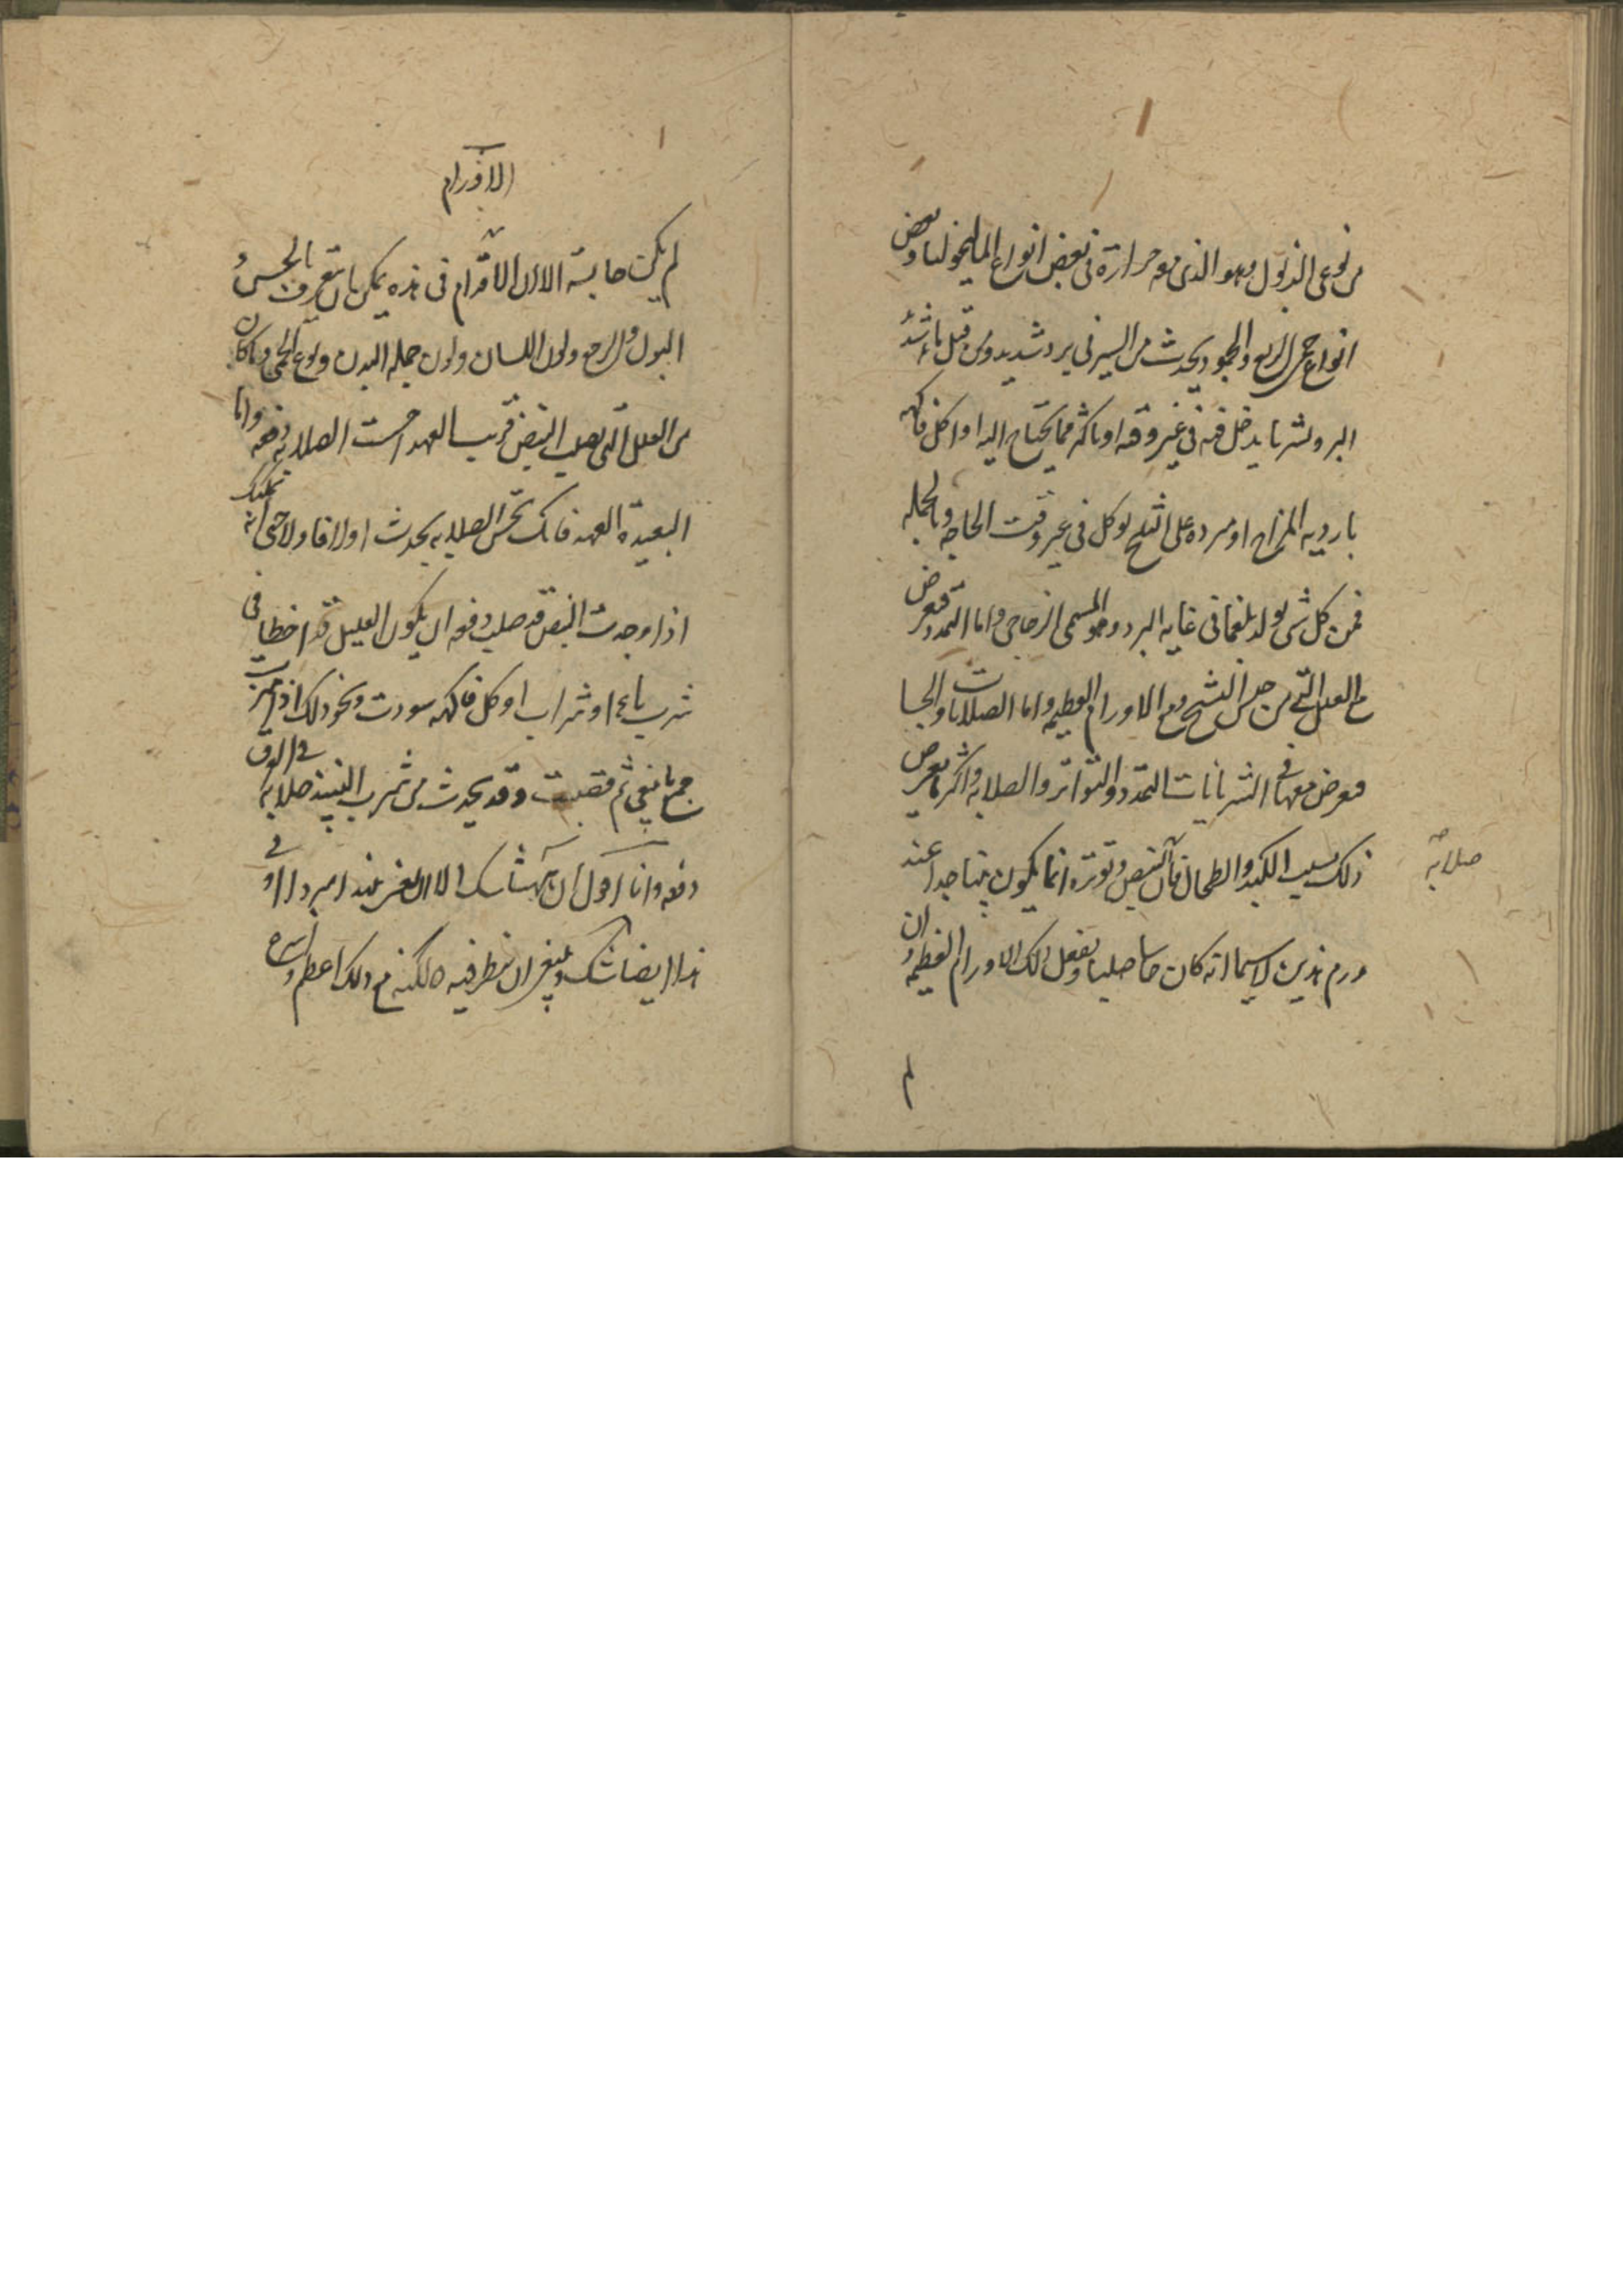 من نوعى الذبول وهو الذى معه حرارة فى بعض انواع الماليخوليا وبعض
انواع حمى الربع والجمود يحدث من السير فى برد شديد ومن قبل ما شد
البرد وشر ما يدخل فيه فى غير وقته او باكثر مما يحتاج اليه او اكل فاكهه
بارديه المزاج او مبرده على الثلج يوكل فى غير وقت الحاجه وبالجمله
فمن كل شى يولد بلغما فى غايه البرد وهو المسمى الزجاجى واما التمدد فيعرض
مع العلل التى من جنس التشنج ومع الاورام العظيمه واما الصلابات والجسا
فيعرض معها فى الشريانات التمدد والتواتر والصلابه واكثر ما يعرض
ذلك بسبب الكبد والطحال فان النبض وتوتره انما يكون بينا جدا عند
صلابة
ورم هذين لا سيما انه كان جاسيا صلبا ويفعل ذلك الاورام العظيمه وان
لم
الاورام
لم يكن جاسية الا ان الاورام فى هذه يمكن ان تتعرف بالجس و
البول والبرجع ولون اللسان ولون جمله البدن ونوع الحمى وما كان
من العلل التى تصلب النبض قريب العهد احست الصلابه دفعه واما
البعيدة العهد فانك تحس الصلابه يحدث اولا فاولا حتى انه يمكنك
اذا وجدت النبض قد صلب دفعه ان يكون العليل قد اخطا فى
شرب ماء او شراب او اكل فاكهه سودت ونحو ذلك اذا ميزت
جميع ما ينبغى ثم قضيت وقد يحدث من شرب النبيذ صلابه فى العرق
دفعه وانا اقول ان يكون شك الا ان يعنى نبيذا مبردا او فى
هذا ايضا شك وينبغى ان ينظر فيه لكنه مع ذلك اعظم واسرع